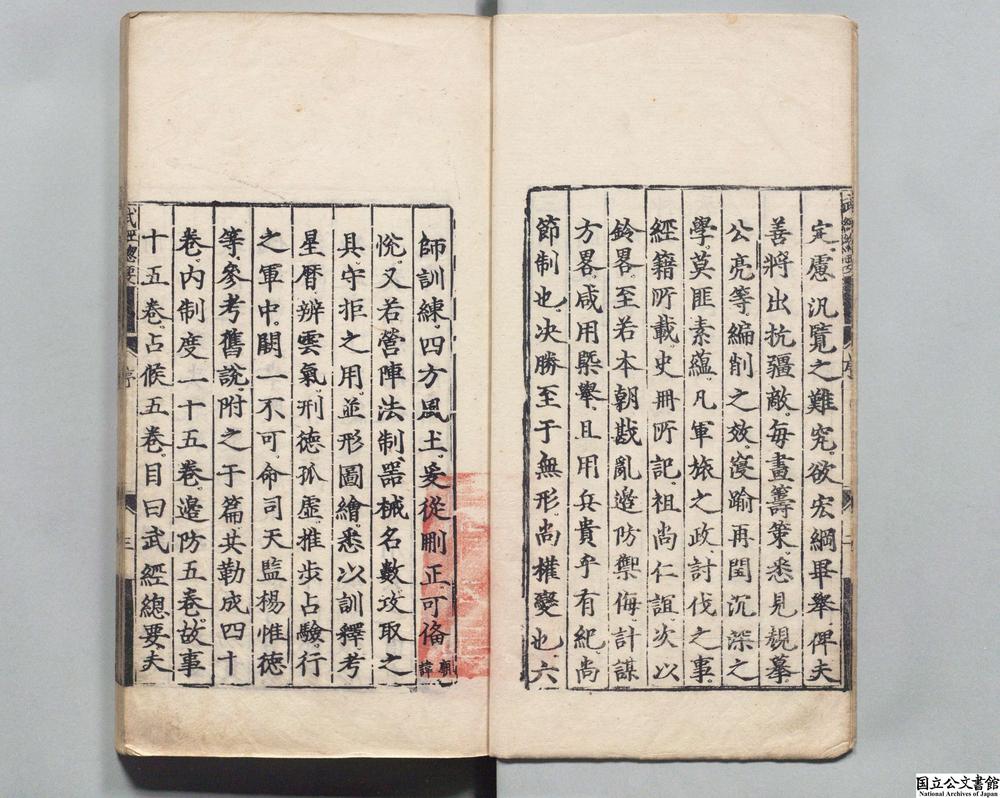 武經總要
序
二
定慮汎覽之難究欲宏綱畢舉俾夫
善將出抗疆敵每畫籌策悉見規摹
公亮等編削之效寖踰再閏沉深之
學莫匪素蘊凡軍旅之政討伐之事
經籍所載史冊所記祖尚仁誼次以
鈐畧至若本朝戡亂邊防禦侮計謀
方畧咸用槩舉且用兵貴乎有紀尚
節制也决勝至于無形尚權變也六
師訓練四方風土爰從刪正可俻廟諱
恱又若營陣法制器械名數攻取之
具守拒之用並形圖繪悉以訓釋考
星曆辨雲氣刑徳孤虛推步占驗行
之軍中闕一不可命司天監楊惟徳
等參考舊說附之于篇共勒成四十
卷内制度一十五卷邊防五卷故事
十五卷占候五卷目曰武經總要夫
武經總要
序
三
国立公文書館
National Archives of Japan